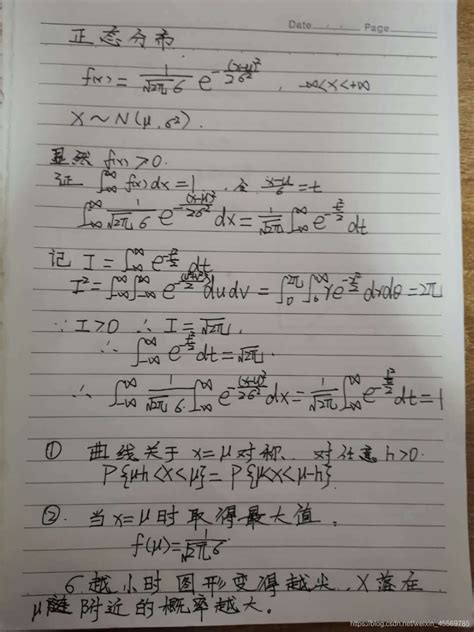 Date Page
正态分布
f(x) = 1/(√2π σ) e^(-(x-μ)²/2σ²) , -∞<x<+∞
X ~ N(μ, σ²).
显然 f(x) > 0.
证 ∫_{-∞}^{∞} f(x)dx = 1, 令 (x-μ)/σ = t
∫_{-∞}^{∞} 1/(√2π σ) e^(-(x-μ)²/2σ²) dx = 1/√2π ∫_{-∞}^{∞} e^(-t²/2) dt
记 I = ∫_{-∞}^{∞} e^(-t²/2) dt
I² = ∫_{-∞}^{∞} ∫_{-∞}^{∞} e^(-(u²+v²)/2) du dv = ∫_0^{2π} ∫_0^{∞} r e^(-r²/2) dr dθ = 2π
∵ I>0 ∴ I = √2π.
∴ ∫_{-∞}^{∞} e^(-t²/2) dt = √2π.
∴ ∫_{-∞}^{∞} 1/(√2π σ) ∫_{-∞}^{∞} e^(-(x-μ)²/2σ²) dx = 1/√2π ∫_{-∞}^{∞} e^(-t²/2) dt = 1
① 曲线关于 x=μ 对称. 对任意 h>0.
P{μ-h<X<μ} = P{μ<X<μ-h}
②. 当 x=μ 时 取得最大值,
f(μ) = 1/(√2π σ).
σ 越小时 图形变得越尖. X 落在
μ 附近的概率越大。
https://blog.csdn.net/weixin_45569785